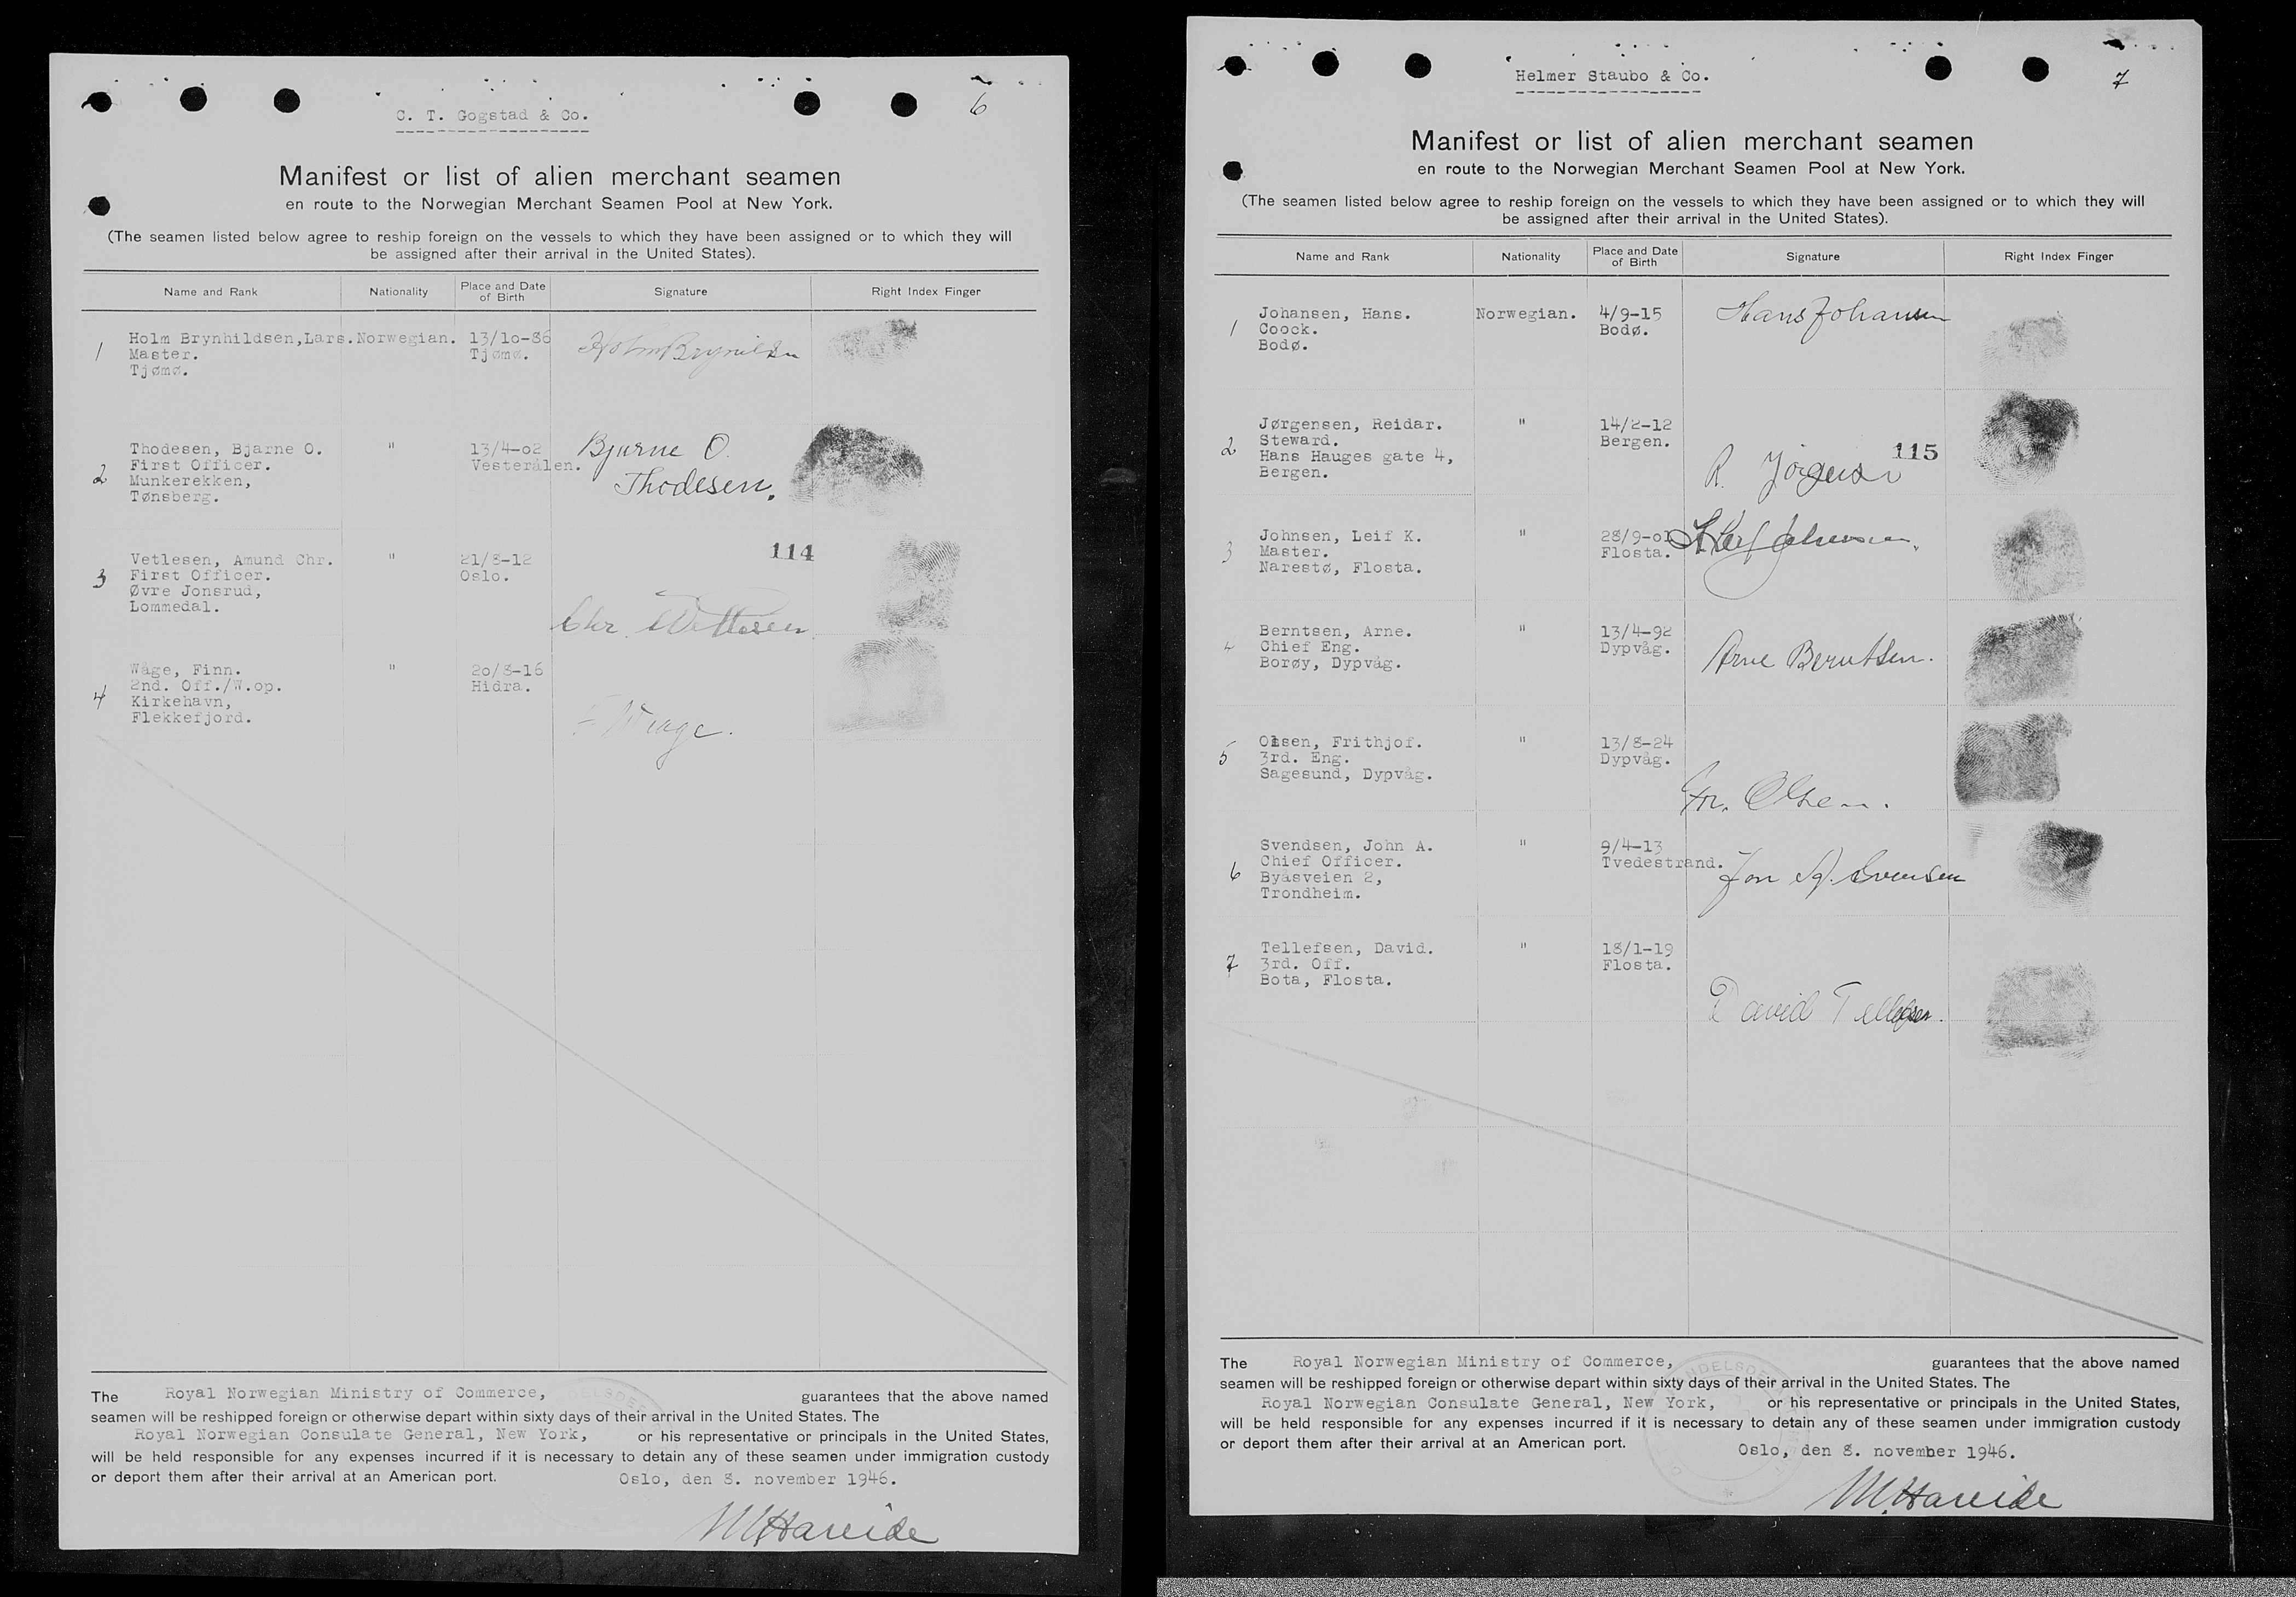 C. T. Gogstad & Co.
6
Manifest or list of alien merchant seamen
en route to the Norwegian Merchant Seamen Pool at New York.
(The seamen listed below agree to reship foreign on the vessels to which they have been assigned or to which they will
be assigned after their arrival in the United States).
Name and Rank Nationality Place and Date of Birth Signature Right Index Finger
1 Holm Brynhildsen,Lars. Norwegian. 13/10-86
Master. Tjømø.
Tjømø.
Thodesen, Bjarne O. " 13/4-02 Bjarne O.
2 First Officer. Vesterålen. Thodesen.
Munkerekken,
Tønsberg.
114
Vetlesen, Amund Chr. " 21/8-12
3 First Officer. Oslo.
Øvre Jonsrud,
Lommedal.
Chr.
Wåge, Finn. " 20/8-16
4 2nd. Off./W.op. Hidra.
Kirkehavn,
Flekkefjord.
The Royal Norwegian Ministry of Commerce, guarantees that the above named
seamen will be reshipped foreign or otherwise depart within sixty days of their arrival in the United States. The
Royal Norwegian Consulate General, New York, or his representative or principals in the United States,
will be held responsible for any expenses incurred if it is necessary to detain any of these seamen under immigration custody
or deport them after their arrival at an American port. Oslo, den 8. november 1946.
Helmer Staubo & Co.
7
Manifest or list of alien merchant seamen
en route to the Norwegian Merchant Seamen Pool at New York.
(The seamen listed below agree to reship foreign on the vessels to which they have been assigned or to which they will
be assigned after their arrival in the United States).
Name and Rank Nationality Place and Date of Birth Signature Right Index Finger
Johansen, Hans. Norwegian. 4/9-15 Hans Johansen
1 Coock. Bodø.
Bodø.
Jørgensen, Reidar. " 14/2-12
2 Steward. Bergen.
Hans Hauges gate 4, 115
Bergen.
R.
Johnsen, Leif K. " 28/9-01
3 Master. Flosta.
Narestø, Flosta.
Berntsen, Arne. " 13/4-92
4 Chief Eng. Dypvåg. Arne Berntsen.
Borøy, Dypvåg.
Olsen, Frithjof. " 13/8-24
5 3rd. Eng. Dypvåg.
Sagesund, Dypvåg.
Fr. Olsen.
Svendsen, John A. " 9/4-13
6 Chief Officer. Tvedestrand.
Byåsveien 2,
Trondheim.
Tellefsen, David. " 18/1-19
7 3rd. Off. Flosta.
Bota, Flosta.
David Tellefsen.
The Royal Norwegian Ministry of Commerce, guarantees that the above named
seamen will be reshipped foreign or otherwise depart within sixty days of their arrival in the United States. The
Royal Norwegian Consulate General, New York, or his representative or principals in the United States,
will be held responsible for any expenses incurred if it is necessary to detain any of these seamen under immigration custody
or deport them after their arrival at an American port. Oslo, den 8. november 1946.